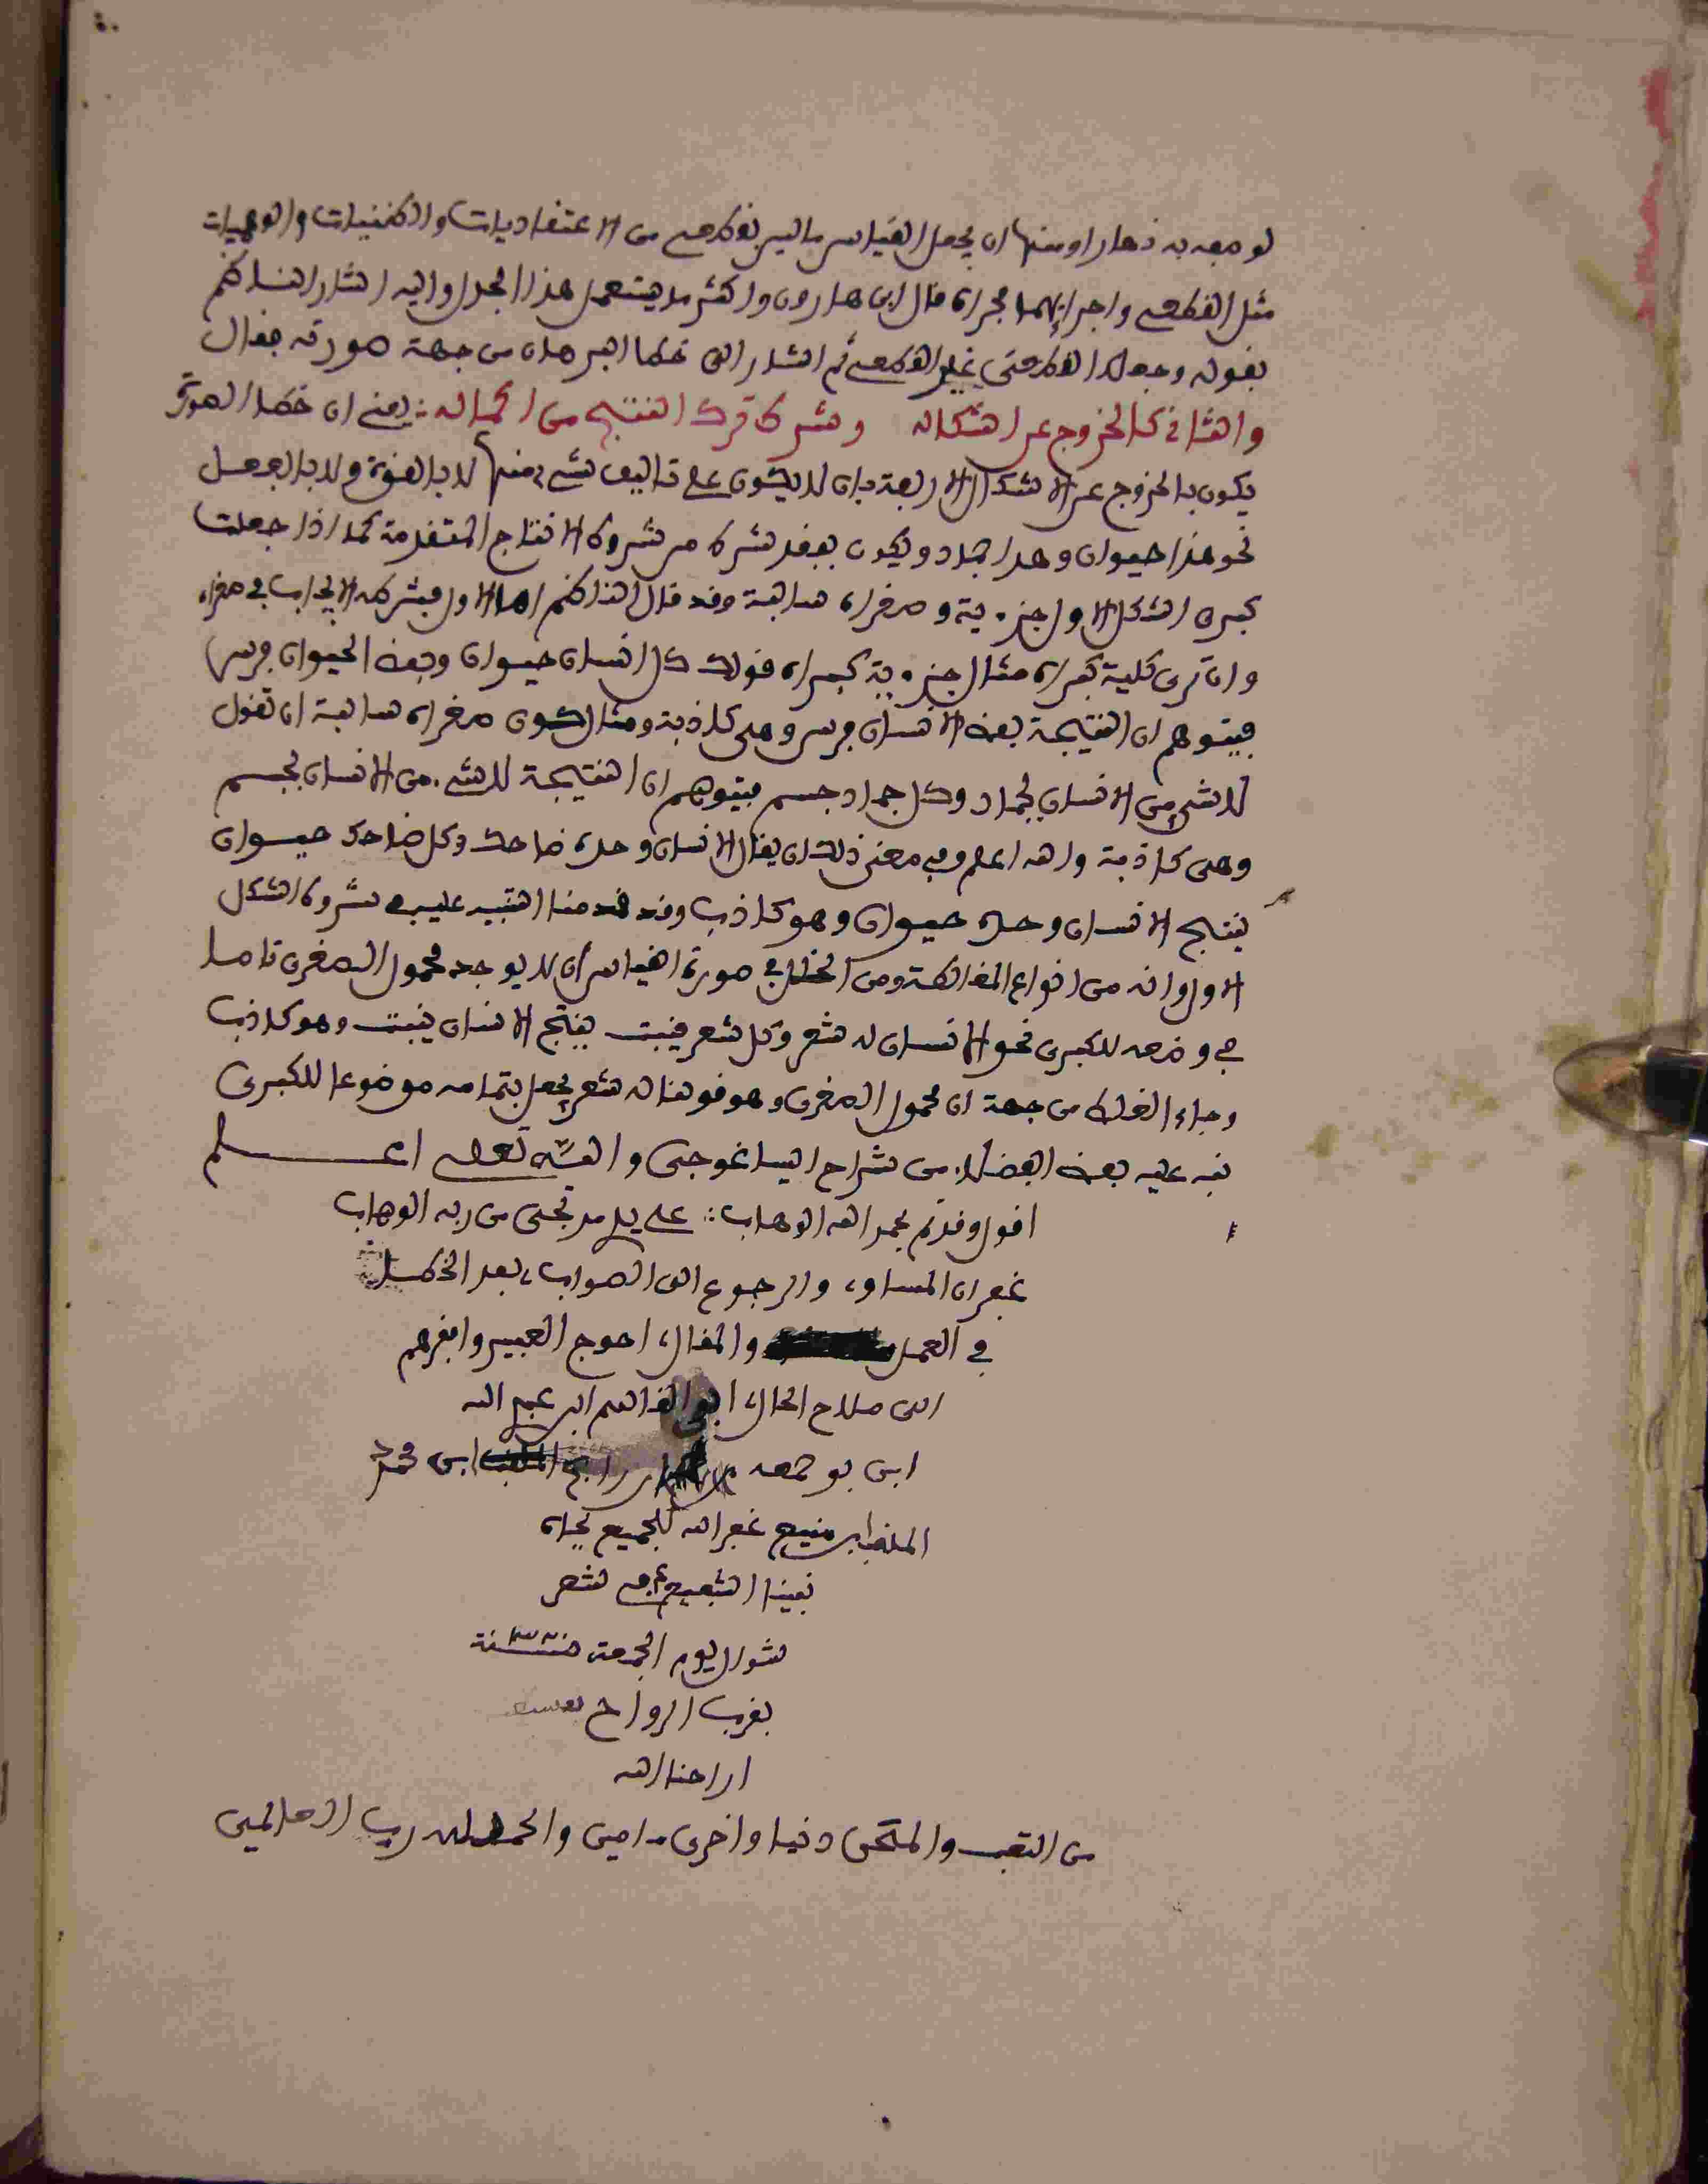 لوصفه به نهارا ومنها ان يجعل القياس ما ليس بقطعي من الاعتقاديات والظنيات والوهميات
مثل القطعي واجرايهما مجراه قال ابن هارون واكثر ما يستعمل هذا الجدل واليه اشار الناظم
بقوله وجعل القطعي غير القطعي ثم اشار الى خطا البرهان من جهة صورته فقال
والثان كالخروج عن اشكاله وشرط ترك النتج من اكماله يعني ان خطا الصورة
يكون بالخروج عن الاشكال الاربعة بان لا يكون على تاليف شيء منها لا بالقوة ولا بالفعل
نحو هذا حيوان وهذا جماد ويكون بفقد شرط من شروط الانتاج المتقدمة كما اذا جعلت
كبرى الشكل الاول جزءية وصغراه سالبة وقد قال الناظم اما الاول فشرطه الايجاب في صغراه
وان ترى كلية كبراه مثال جزءية كبراه قولك كل انسان حيوان وبعض الحيوان فرس
فيتوهم ان النتيجة بعض الانسان فرس وهي كاذبة ومثال كون صغراه سالبة ان تقول
لا شيء من الانسان بجماد وكل جماد جسم فيتوهم ان النتيجة لا شيء من الانسان بجسم
وهي كاذبة والله اعلم وفي معنى ذلك ان يقال الانسان وحده ضاحك وكل ضاحك حيوان
ينتج الانسان وحده حيوان وهو كاذب وقد قدمنا التنبيه عليه في شروط الشكل
الاول وانه من انواع المغالطة ومن الخلل في صورة القياس ان لا يوجد محمول الصغرى تاما
في وضعه للكبرى نحو الانسان له شعر وكل شعر ينبت ينتج الانسان ينبت وهو كاذب
وجاء الغلط من جهة ان محمول الصغرى وهو قولنا له شعر لم يجعل بتمامه موضوعا للكبرى
نبه عليه بعض الفضلاء من شراح ايساغوجي والله تعلى اعلم
اقول وقد تم بحمد الله الوهاب على يد مرتجى من ربه الوهاب
غفران المساو، والرجوع الى الصواب، بعد الخطل
في العمل والمقال، احوج العبيد وافقرهم
الى صلاح الحال، ابو القاسم ابن عبد الله
ابن بو جمعه رابح ابن محمد
الملقب ابن منيع غفر الله للجميع بجاه
نبينا الشفيع في شهر
شوال يوم الجمعة سنة
بقرب الرواح
اراحنا الله
من التعب والمحن دنيا واخرى ءامين والحمد لله رب العالمين